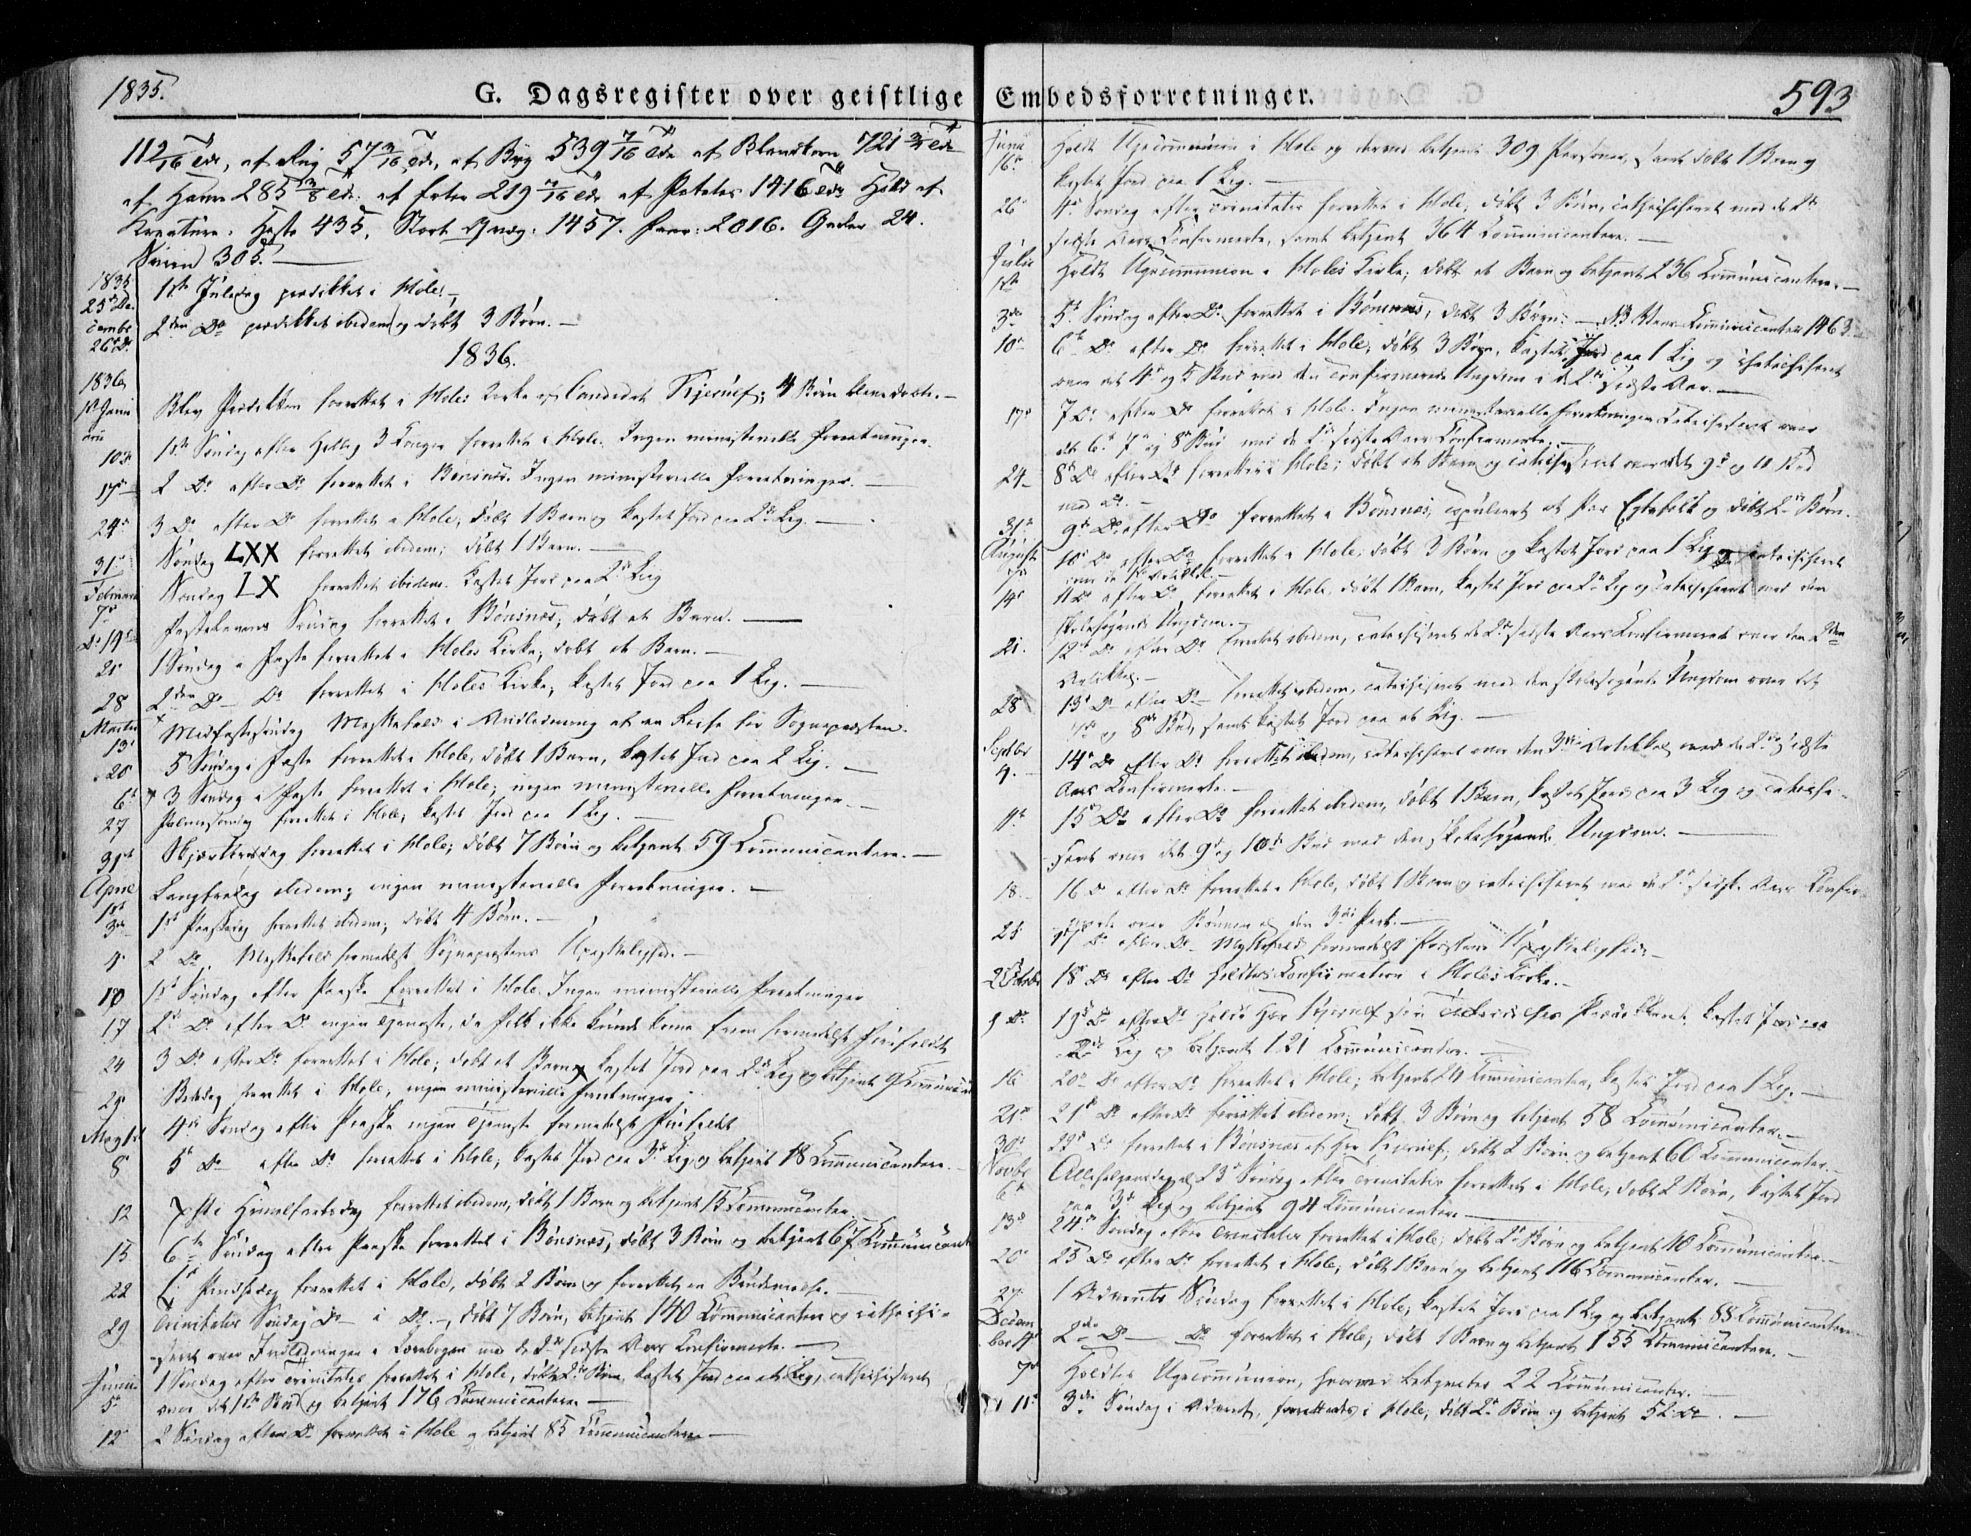 1835.
G. Dagsregister over geistlige Embedsforretninger.
593
112/16 Tdr, af Rug 57 3/16 Tdr, af Byg 539 7/16 Tdr af Blandkorn 721 Tdr
af Havre 285 Tdr af Erter 219 Tdr af Potetes 1416 Tdr Hold af
Kreature. Heste 435, Stort Qvæg. 1457. Faar. 2016. Gjeder 24.
Sviin 305. —
1835
25de De
cember
1ste Juledag prædikket i Hole. —
26de D.
2den Do prædikket ibidem og døbt 3 Børn. —
1836.
1836
1ste Janu
arii
Blev Prædiken forrettet i Holes Kirke af Candidat Kjerulf; 4 Børn bleve døbte. —
10de
1ste Søndag efter Hellig 3 Konger forrettet i Hole. Ingen ministerielle Forretninger.
17de
2 Do efter Do forrettet i Bønsnæs. Ingen ministerielle Forretninger. —
24de
3 Do efter Do forrettet i Hole; døbt 1 Barn og kastet Jord paa 2de Lig. —
31te
Søndag LXX forrettet ibidem; døbt 1 Barn. —
Februarii
7de
Søndag LX forrettet ibidem. Kastet Jord paa 2de Liig
Do 14de
Fastelavens Søndag forrettet i Bønsnæs; døbt et Barn. —
21
1 Søndag i Faste forrettet i Holes Kirke; døbt et Barn. —
28
2den Do — Do forrettet i Holes Kirke; kastet Jord paa 1 Lig. —
Martii
13de
Midfastesøndag Messefald i Anledning af en Reise for Sognepræsten.
20
5 Søndag i Faste forrettet i Hole, døbt 1 Barn, kastet Jord paa 2 Lig. —
6te
3 Søndag i Faste forrettet i Hole; ingen ministerielle Forretninger. —
27
Palmesøndag forrettet i Hole, kastet Jord paa 1 Lig. —
31te
Skjærtorsdag forrettet i Hole; døbt 7 Børn og betjent 59 Communicantere. —
April
1ste
Langfredag ibidem; ingen ministerielle Forretninger. —
3de
1ste Paaskedag forrettet ibidem; døbt 4 Børn. —
4
2 Do. Messefald formedelst Sognepræstens Upasselighed. —
10
1ste Søndag efter Paaske forrettet i Hole. Ingen ministerielle Forretninger
17
2de Do efter Do ingen Tjeneste, da Folk ikke kunde komme frem formedelst
24
3 Do efter Do forrettet i Hole; døbt et Barn, kastet Jord paa 2de Lig og betjent 9 Communicant
29
Bededag forrettet i Hole, ingen ministerielle Forretninger
May 1ste
4de Søndag efter Paaske ingen Tjeneste formedelst
8
5te Do efter Do forrettet i Hole; kastet Jord paa 3de Lig og betjent 18 Communicantere. —
12
Christi Himmelfartsdag forrettet ibidem, døbt 1 Barn og betjent 15 Communicanter. —
15
6te Søndag efter Paaske forrettet i Bønsnæs, døbt 3 Børn og betjent 67 Communicant
22
1ste Pindsedag forrettet i Hole, døbt 2 Børn og forrettet en Brudevielse. —
29
Trinitatis Søndag Do i Do. —, døbt 7 Børn, betjent 140 Communicantere og catechi-
seret over Indledningen i Lærebogen med de 2de sidste Aars Confirmerte. —
Junii
5te
1 Søndag efter Trinitatis forrettet i Hole, døbt 2de Børn, kastet Jord paa et Lig, catechiseret
over det 1ste Bud og betjent 176 Communicantere. —
12te
2 Søndag efter Do forrettet i Hole og betjent 85 Communicantere —
Junii
16de
Holdt Ugecommunion i Hole og derved betjent 309 Personer, samt døbt 1 Barn og
kastet Jord paa 1 Lig. —
26de
4de Søndag efter Trinitatis forrettet i Hole, døbt 3 Børn, catechiseret med de 2de
sidste Aars Confirmerte, samt betjent 364 Communicantere. —
Julii
1ste
Holdt Ugecommunion i Holes Kirke; døbt et Barn og betjent 236 Communicantere. —
3de
5te Søndag efter Do forrettet i Bønsnæs, døbt 3 Børn. — NB Communicanter 1463
10de
6te Do efter Do forrettet i Hole; døbt 3 Børn, kastet Jord paa 1 Lig og Catechiseret
over det 4de og 5 Bud med den confirmerede Ungdom i de 2de sidste Aar. —
17de
7 Do efter Do forrettet i Hole. Ingen ministerielle Forretninger Catechiseret over
det 6te 7de og 8de Bud med de 2de sidste Aars Confirmerte. —
24
8de Do efter Do forrettet i Hole; døbt et Barn og catechiseret over det 9de og 10 Bud
31te
9de Do efter Do forrettet i Bønsnæs, copuleret et Par Egtefolk og døbt 2de Børn.
Augusti
7de
10de Do efter Do forrettet i Hole, døbt 3 Børn og kastet Jord paa 1 Lig og catechiseret
over de 1ste Artikkel. —
14de
11 Do efter Do forrettet i Hole, døbt 1 Barn, kastet Jord paa 2de Lig og Catechiseret med den
skolesøgende Ungdom. —
21.
12te Do efter Do forrettet ibidem, catechiseret de 2de sidste Aars Confirmerede over den 2den
Artikkel. —
28
13de Do efter Do — forrettet ibidem, catechiseret med den skolesøgende Ungdom over det
7de og 8de Bud, samt kastet Jord paa et Lig. —
Septbr
4.
14de Do efter Do forrettet ibidem, catechiseret over den 3die Artikkel med de 2de sidste
Aars Confirmerte. —
11te
15de Do efter Do forrettet ibidem, døbt 1 Barn, kastet Jord paa 3 Lig og catechi-
seret over det 9de og 10de Bud med den skolesøgende Ungdom. —
18
16 Do efter Do forrettet i Hole, døbt 1 Barn og catechiseret med de 2de sidste Aars Confir-
merte over Bønnen og den 3die Part. —
25
17 Do efter Do — Messefald formedelst Præstens Upasselighed. —
2 October
18de Do efter Do Holdtes Confirmation i Holes Kirke. —
9 Do
19de Do efter Do holdt Hr Kjerulf sin Prædikken, kastet Jord paa
2de Lig og betjent 121 Communicanter. —
16
20de Do efter Do forrettet i Hole; betjent 24 Communicanter, kastet Jord paa 1 Lig. —
23de
21de Do efter Do forrettet ibidem; døbt 3 Børn og betjent 58 Communicanter. —
30te
22de Do forrettet i Bønsnæs af Hr Kjerulf, døbt 2 Børn og betjent 60 Communicanter. —
Novbr
6te
Allehelgensdag, 23de Søndag efter Trinitatis forrettet i Hole, døbt 2 Børn, kastet Jord
paa 3de Lig og betjent 94 Communicantere —
13de
24de Søndag efter Trinitatis forrettet i Hole; døbt 2de Børn og betjent 40 Communicanter. —
20de
25 Do efter Do forrettet i Hole; døbt 1 Barn og betjent 116 Communicanter. —
27
1 Advents Søndag forrettet i Hole, kastet Jord paa 1 Lig og betjent 88 Communicantere —
Decem
ber 4de
2den Do — Do forrettet i Hole; døbt 1 Barn og betjent 155 Communicantere. —
7de
Holdtes Ugecommunion, hvorved betjentes 22 Communicanter. —
11te
3de Søndag i Advent, forrettedes i Hole, døbt 2de Børn og betjent 52 Do. —